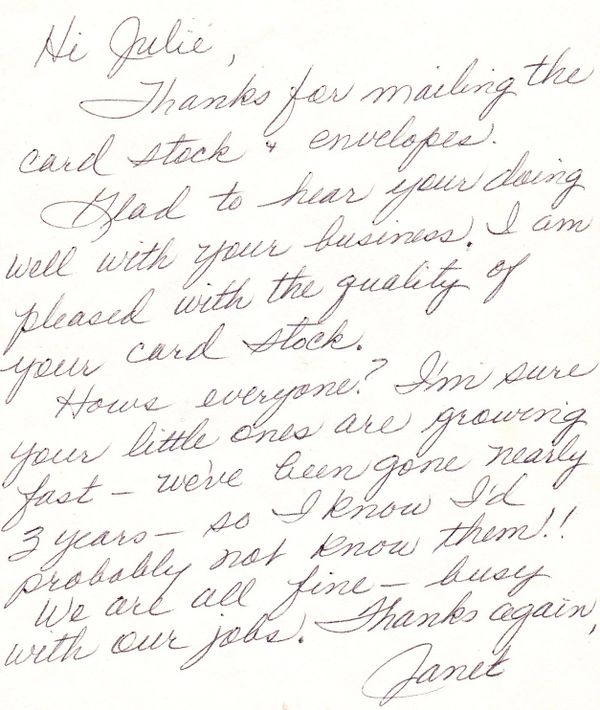 Hi Julie,
Thanks for mailing the
card stock & envelopes.
Glad to hear your doing
well with your business. I am
pleased with the quality of
your card stock.
Hows everyone? I'm sure
your little ones are growing
fast - we've been gone nearly
3 years - so I know I'd
probably not know them!!
We are all fine - busy
with our jobs. Thanks again,
Janet